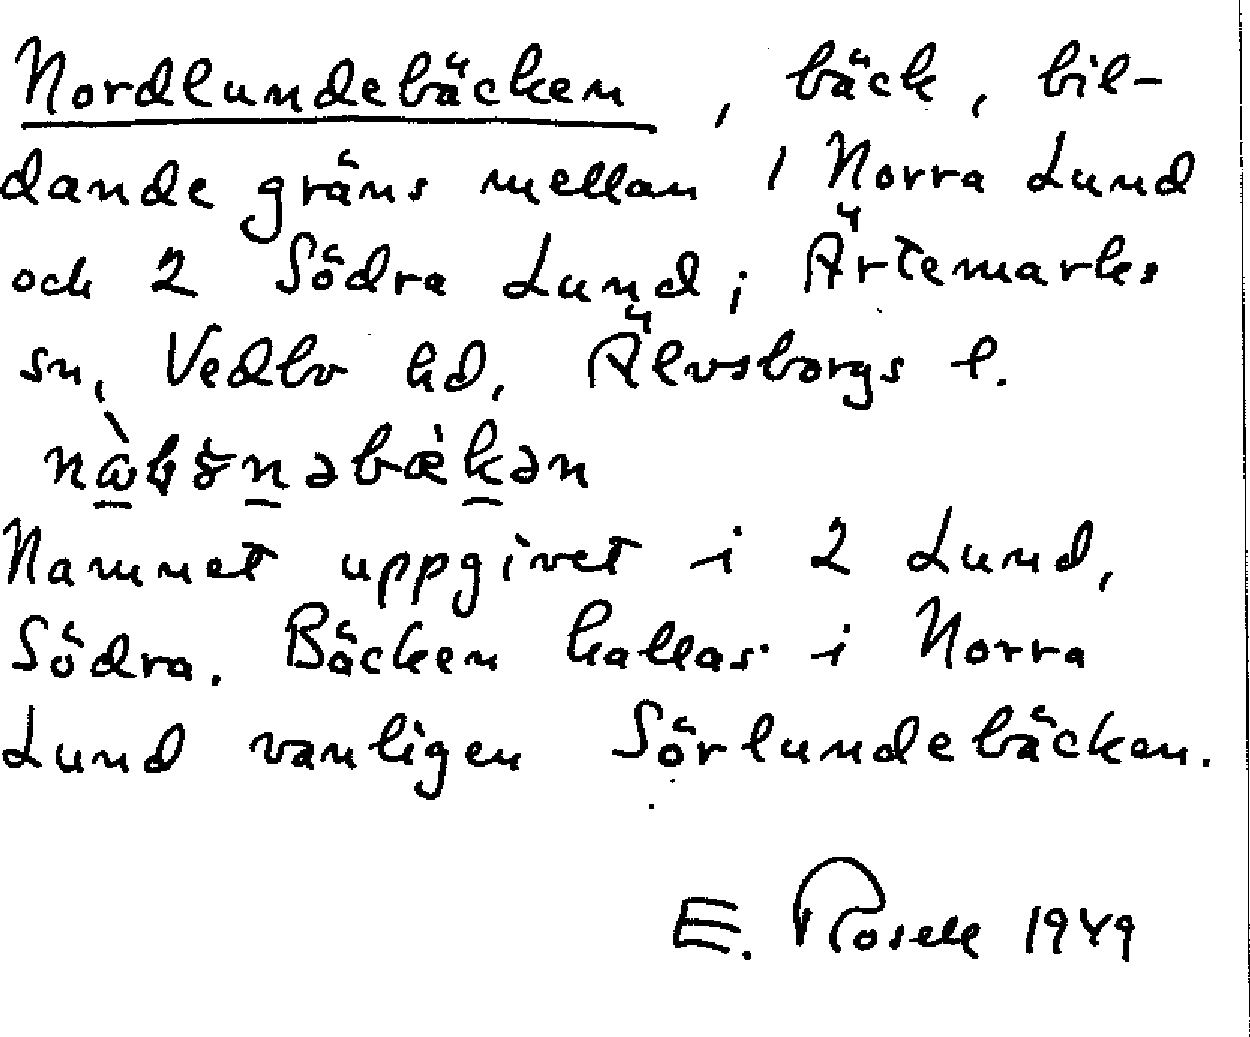 Nordlundebäcken, bäck, bil-
dande gräns mellan 1 Norra Lund
och 2 Södra Lund; Ärtemarks
sn, Vedbo hd, Älvsborgs l.
Namnet uppgivet i 2 Lund,
Södra. Bäcken kallas i Norra
Lund vanligen Sörlundebäcken.
E. Rosell 1949